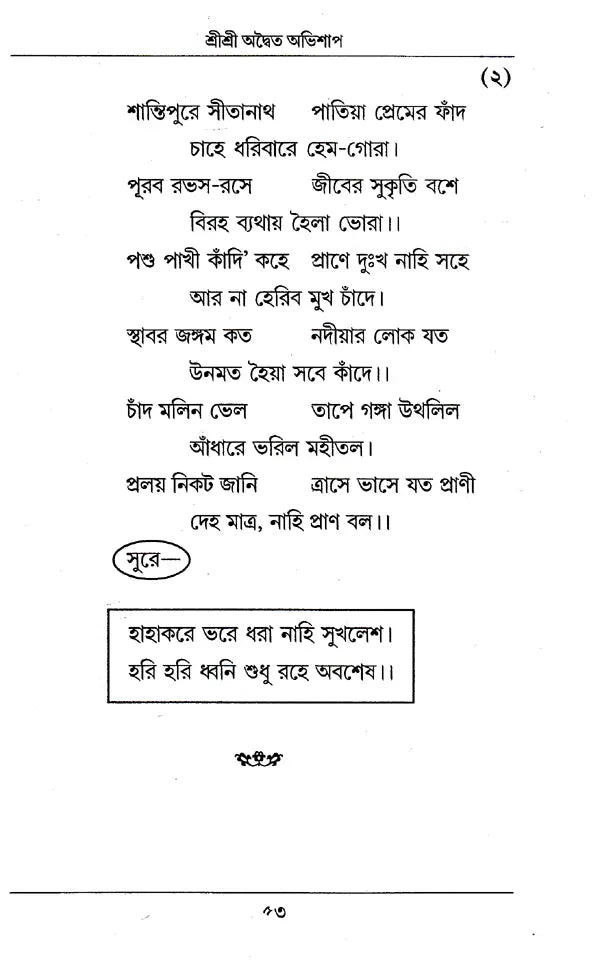 শ্রীশ্রী অদ্বৈত অভিশাপ
(২)
শান্তিপুরে সীতানাথ পাতিয়া প্রেমের ফাঁদ
চাহে ধরিবারে হেম-গোরা।
পূরব রভস-রসে জীবের সুকৃতি বশে
বিরহ ব্যথায় হৈলা ভোরা।।
পশু পাখী কাঁদি' কহে প্রাণে দুঃখ নাহি সহে
আর না হেরিব মুখ চাঁদে।
স্থাবর জঙ্গম কত নদীয়ার লোক যত
উনমত হৈয়া সবে কাঁদে।।
চাঁদ মলিন ভেল তাপে গঙ্গা উথলিল
আঁধারে ভরিল মহীতল।
প্রলয় নিকট জানি ত্রাসে ভাসে যত প্রাণী
দেহ মাত্র, নাহি প্রাণ বল।।
সুরে—
হাহাকরে ভরে ধরা নাহি সুখলেশ।
হরি হরি ধ্বনি শুধু রহে অবশেষ।।
৫৩